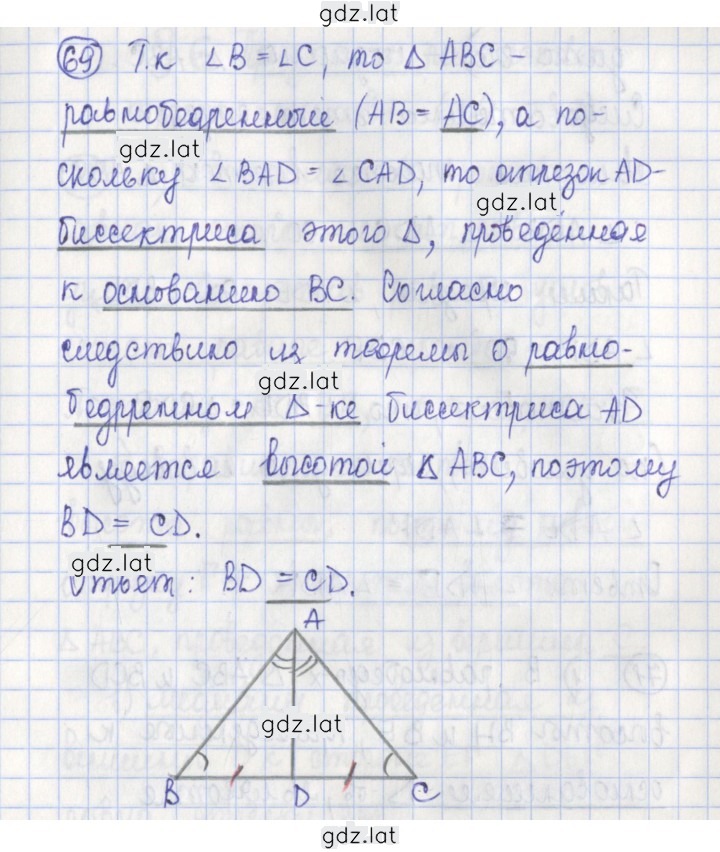 gdz.lat
69 Т.к ∠B = ∠C, то Δ ABC -
равнобедренный (AB = AC), а по-
gdz.lat
скольку ∠BAD = ∠CAD, то отрезок AD-
gdz.lat
биссектриса этого Δ, проведённая
к основанию BC. Согласно
следствию из теоремы о равно-
gdz.lat
бедренном Δ-ке биссектриса AD
является высотой Δ ABC, поэтому
BD = CD.
gdz.lat
Ответ: BD = CD.
A
gdz.lat
B D C
gdz.lat